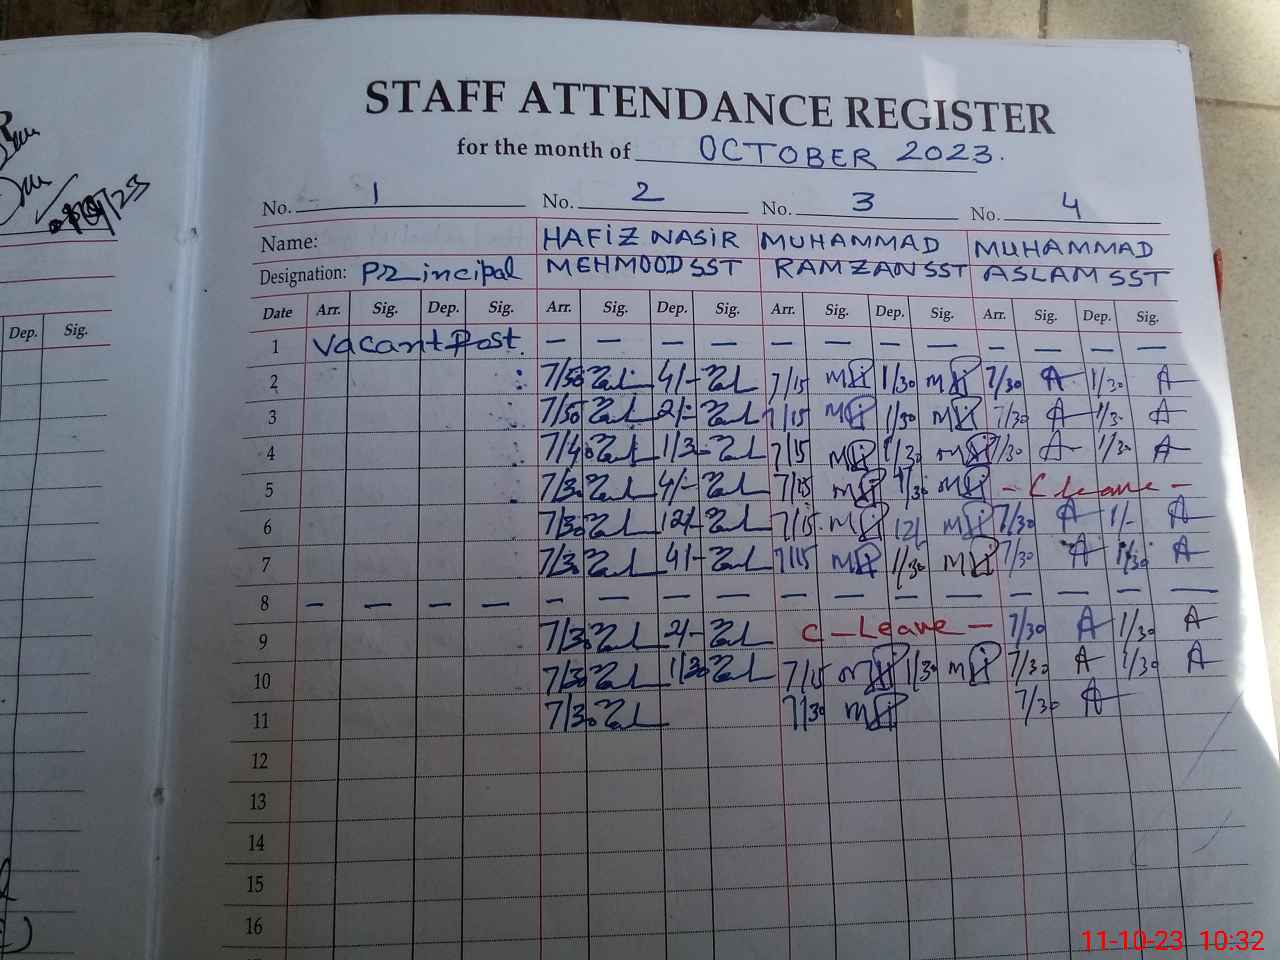 STAFF ATTENDANCE REGISTER
for the month of OCTOBER 2023.
No. 1 No. 2 No. 3 No. 4
Name: HAFIZ NASIR MUHAMMAD MUHAMMAD
Designation: Principal MEHMOOD SST RAMZAN SST ASLAM SST
Dep. Sig. Date Arr. Sig. Dep. Sig. Arr. Sig. Dep. Sig. Arr. Sig. Dep. Sig. Arr. Sig. Dep. Sig.
1 Vacant Post. — — — — — — — — — — — —
2 7/50 4/- 7/15 1/30 7/30 A 1/30 A
3 7/50 2/- 7/15 1/30 7/30 A 1/30 A
4 7/40 1/30 7/15 1/30 7/30 A 1/30 A
5 7/30 4/- 7/15 1/30 - C leave -
6 7/30 12/- 7/15 12/ 7/30 A 1/- A
7 7/30 4/- 7/15 1/30 7/30 A 1/30 A
8 — — — — — — — — — — — — — — — —
9 7/30 2/- C - Leave - 7/30 A 1/30 A
10 7/30 1/30 7/15 1/30 7/30 A 1/30 A
11 7/30 7/30 7/30 A
12
13
14
15
16
11-10-23 10:32